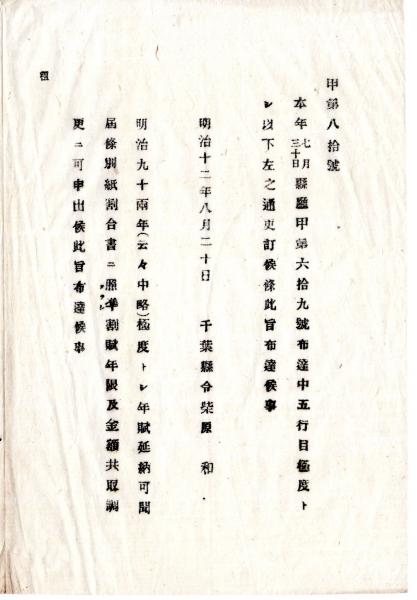 甲第八拾號
本年七月三十日縣廳甲第六拾九號布達中五行目極度ト
シ以下左之通更訂候條此旨布達候事
明治十二年八月二十日　千葉縣令柴原　和
明治九十兩年(云々中略)極度トシ年賦延納可聞
届條別紙割合書ニ照準シ割賦年限及金額共取調
更ニ可申出候此旨布達候事
租